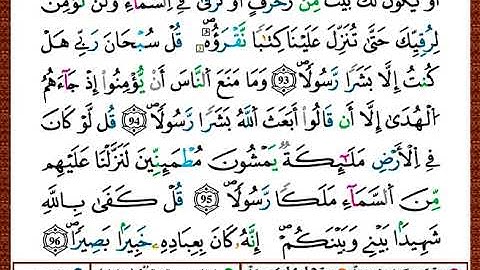 أَوْ يَكُونَ لَكَ بَيْتٌ مِّن زُخْرُفٍ أَوْ تَرْقَىٰ فِي السَّمَآءِ وَلَن نُّؤْمِنَ
لِرُقِيِّكَ حَتَّىٰ تُنَزِّلَ عَلَيْنَا كِتَٰبًا نَّقْرَؤُهُۥ قُلْ سُبْحَانَ رَبِّي هَلْ
كُنتُ إِلَّا بَشَرًا رَّسُولًا ۝93 وَمَا مَنَعَ اَلنَّاسَ أَن يُّؤْمِنُوٓا۟ إِذْ جَآءَهُمُ
اُلْهُدَىٰٓ إِلَّآ أَن قَالُوٓا۟ أَبَعَثَ اَللَّهُ بَشَرًا رَّسُولًا ۝94 قُل لَّوْ كَانَ
فِي اِلْأَرْضِ مَلَٰٓئِكَةٌ يَمْشُونَ مُطْمَئِنِّينَ لَنَزَّلْنَا عَلَيْهِم
مِّنَ اَلسَّمَآءِ مَلَكًا رَّسُولًا ۝95 قُلْ كَفَىٰ بِاللَّهِ
شَهِيدًۢا بَيْنِي وَبَيْنَكُمْ إِنَّهُۥ كَانَ بِعِبَادِهِۦ خَبِيرًۢا بَصِيرًا ۝96